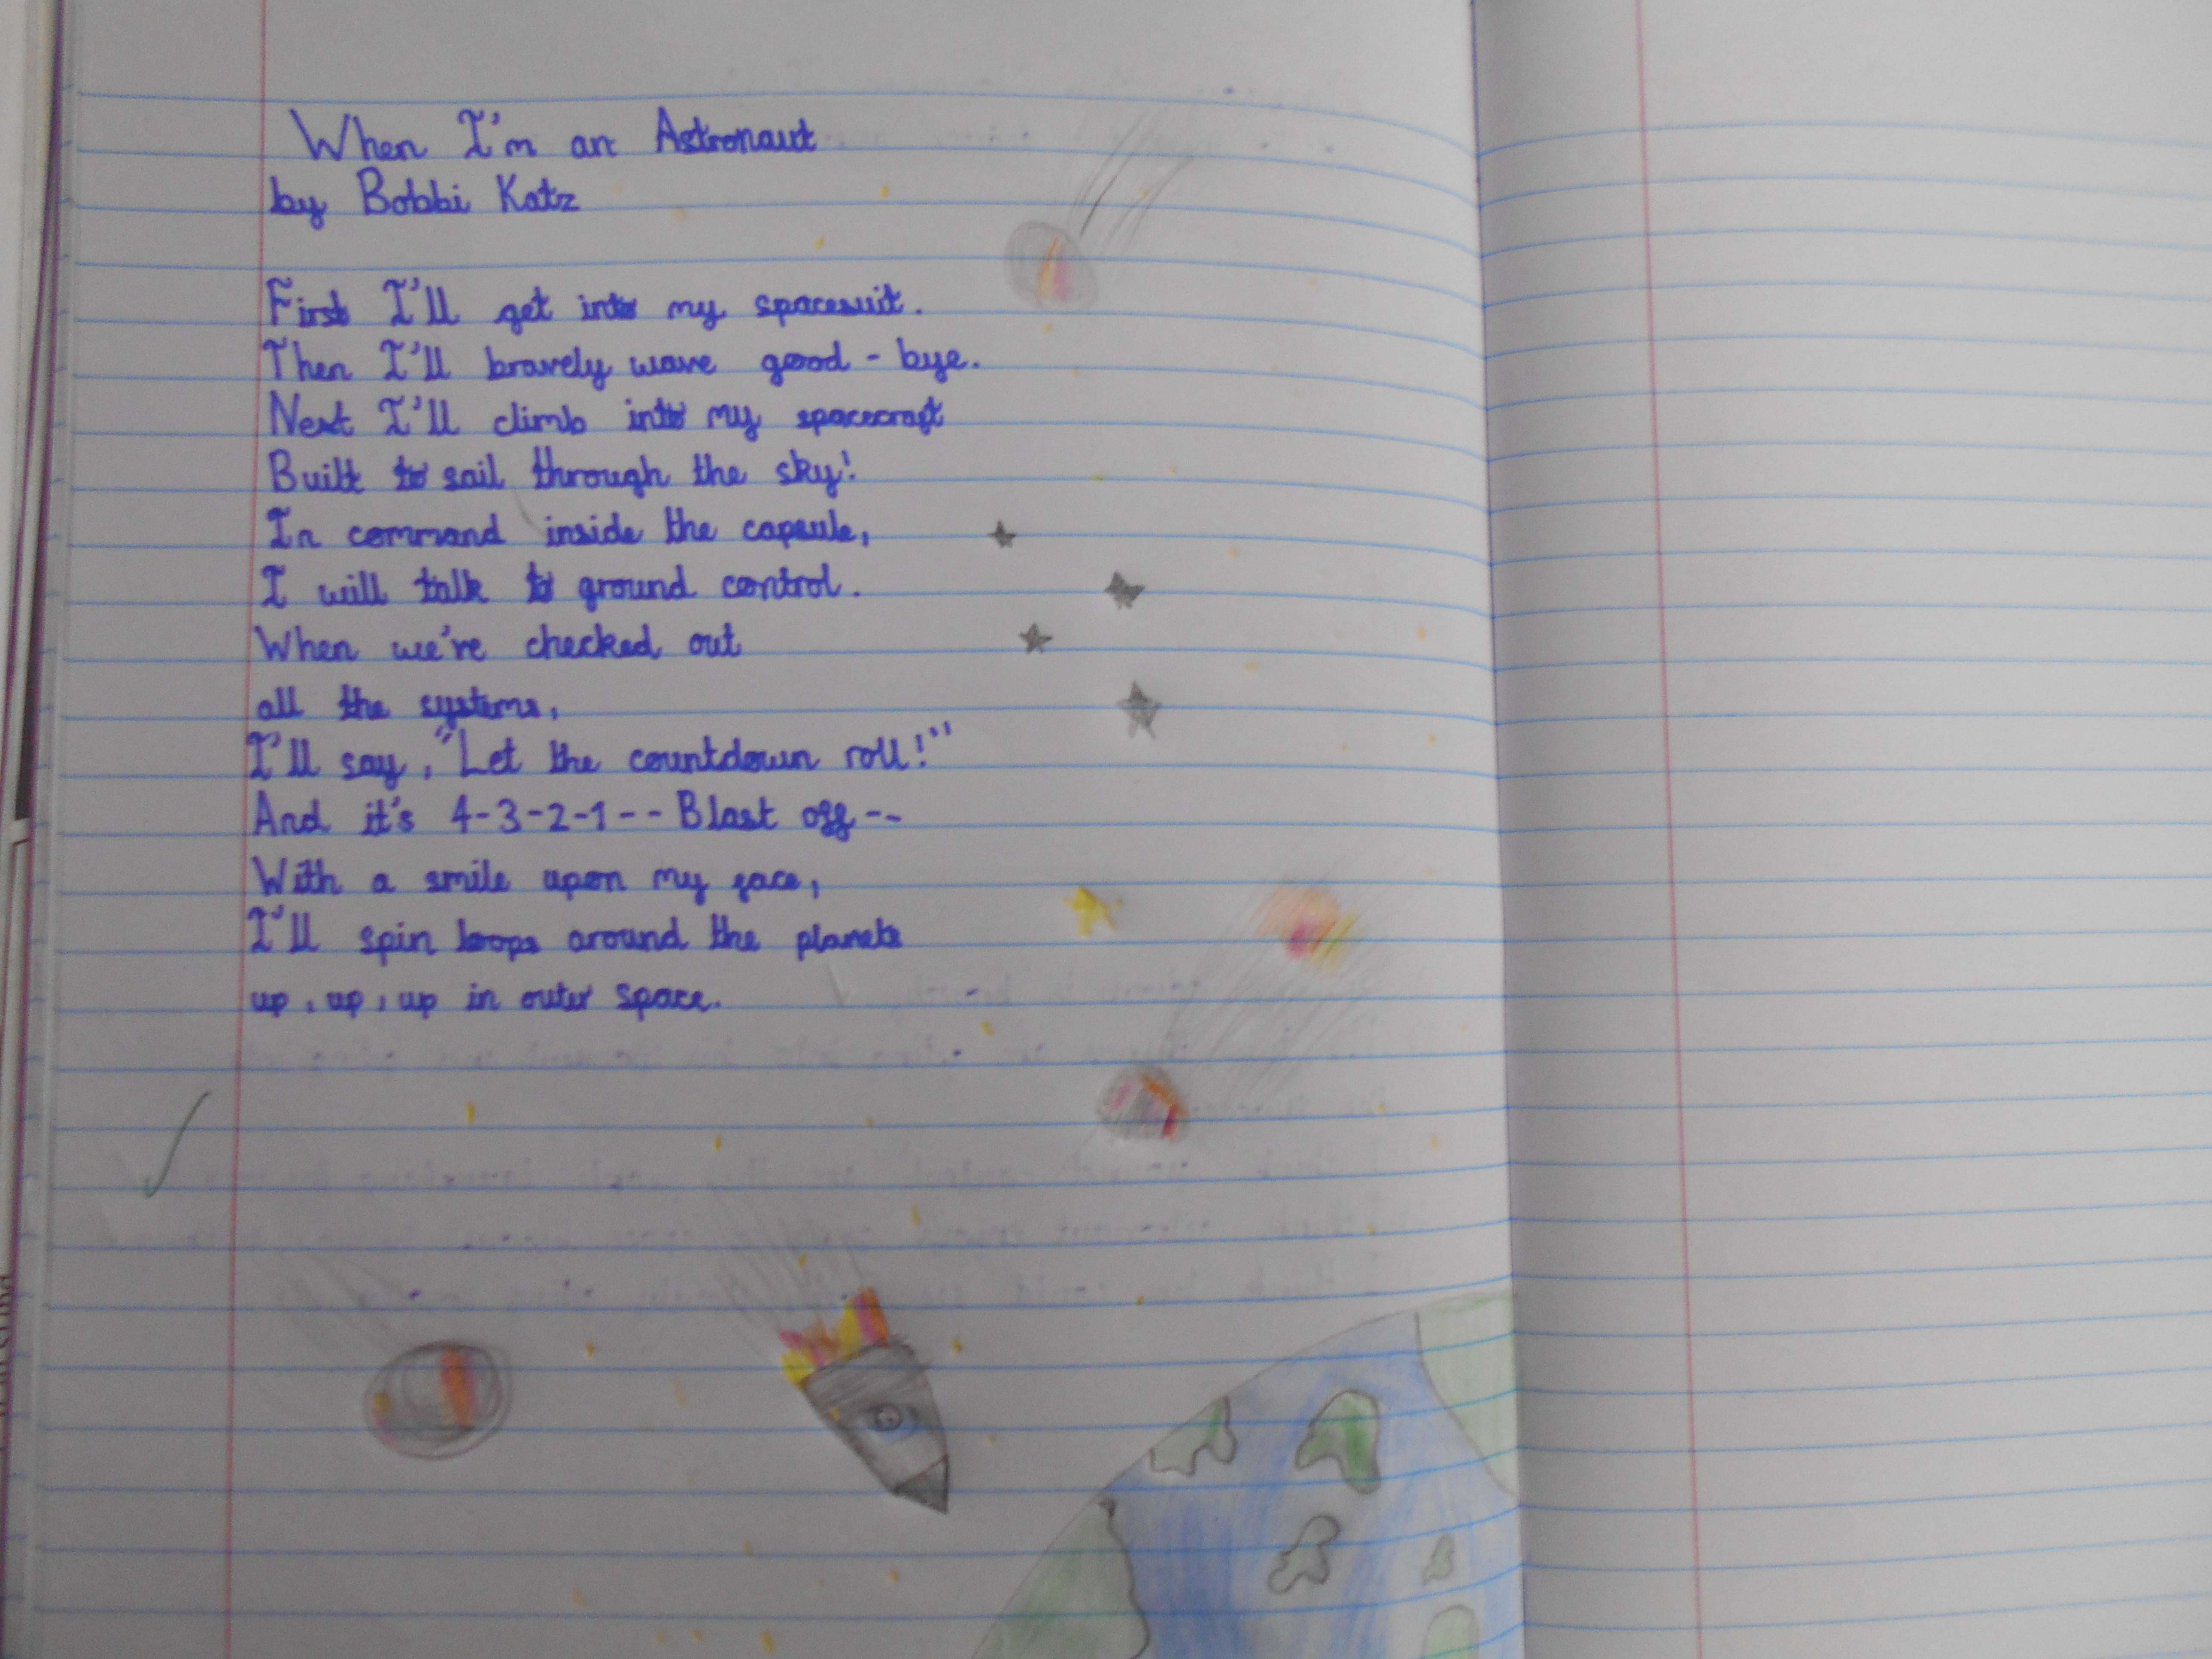 When I'm an Astronaut
by Bobbi Katz
First I'll get into my spacesuit.
Then I'll bravely wave good-bye.
Next I'll climb into my spacecraft
Built to sail through the sky!
In command inside the capsule,
I will talk to ground control.
When we're checked out
all the systems,
I'll say, "Let the countdown roll!"
And it's 4-3-2-1-- Blast off--
With a smile upon my face,
I'll spin loops around the planets
up, up, up in outer space.